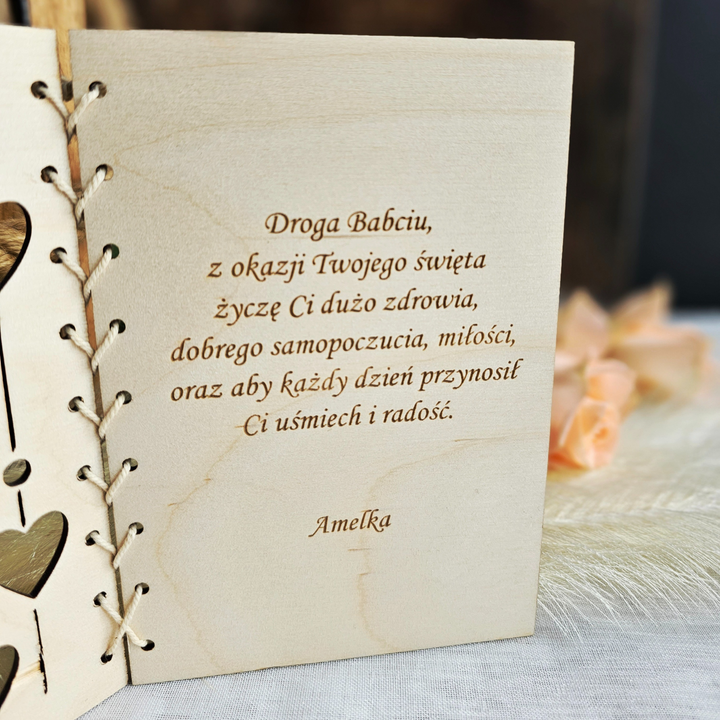 Droga Babciu,
z okazji Twojego święta
życzę Ci dużo zdrowia,
dobrego samopoczucia, miłości,
oraz aby każdy dzień przynosił
Ci uśmiech i radość.
Amelka